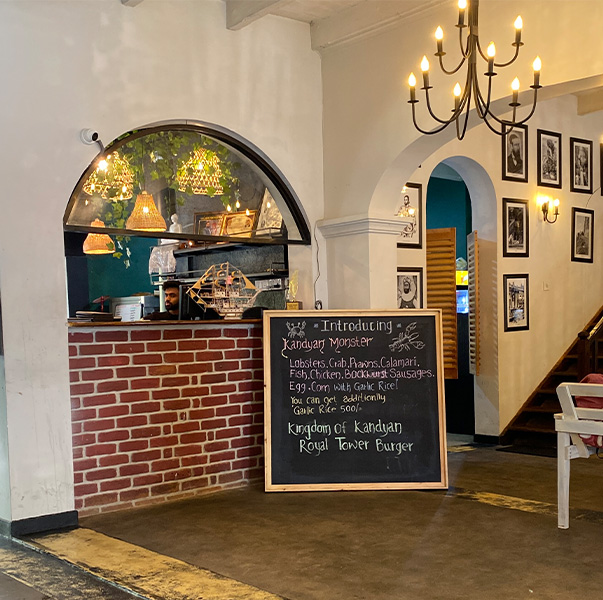 Introducing
Kandyan Monster
Lobsters. Crab. Prawns. Calamari.
Fish. Chicken. Bockwurst Sausages.
Egg. Corn with Garlic Rice!
You can get additionlly
Garlic Rice 500/-
Kingdom of Kandyan
Royal Tower Burger